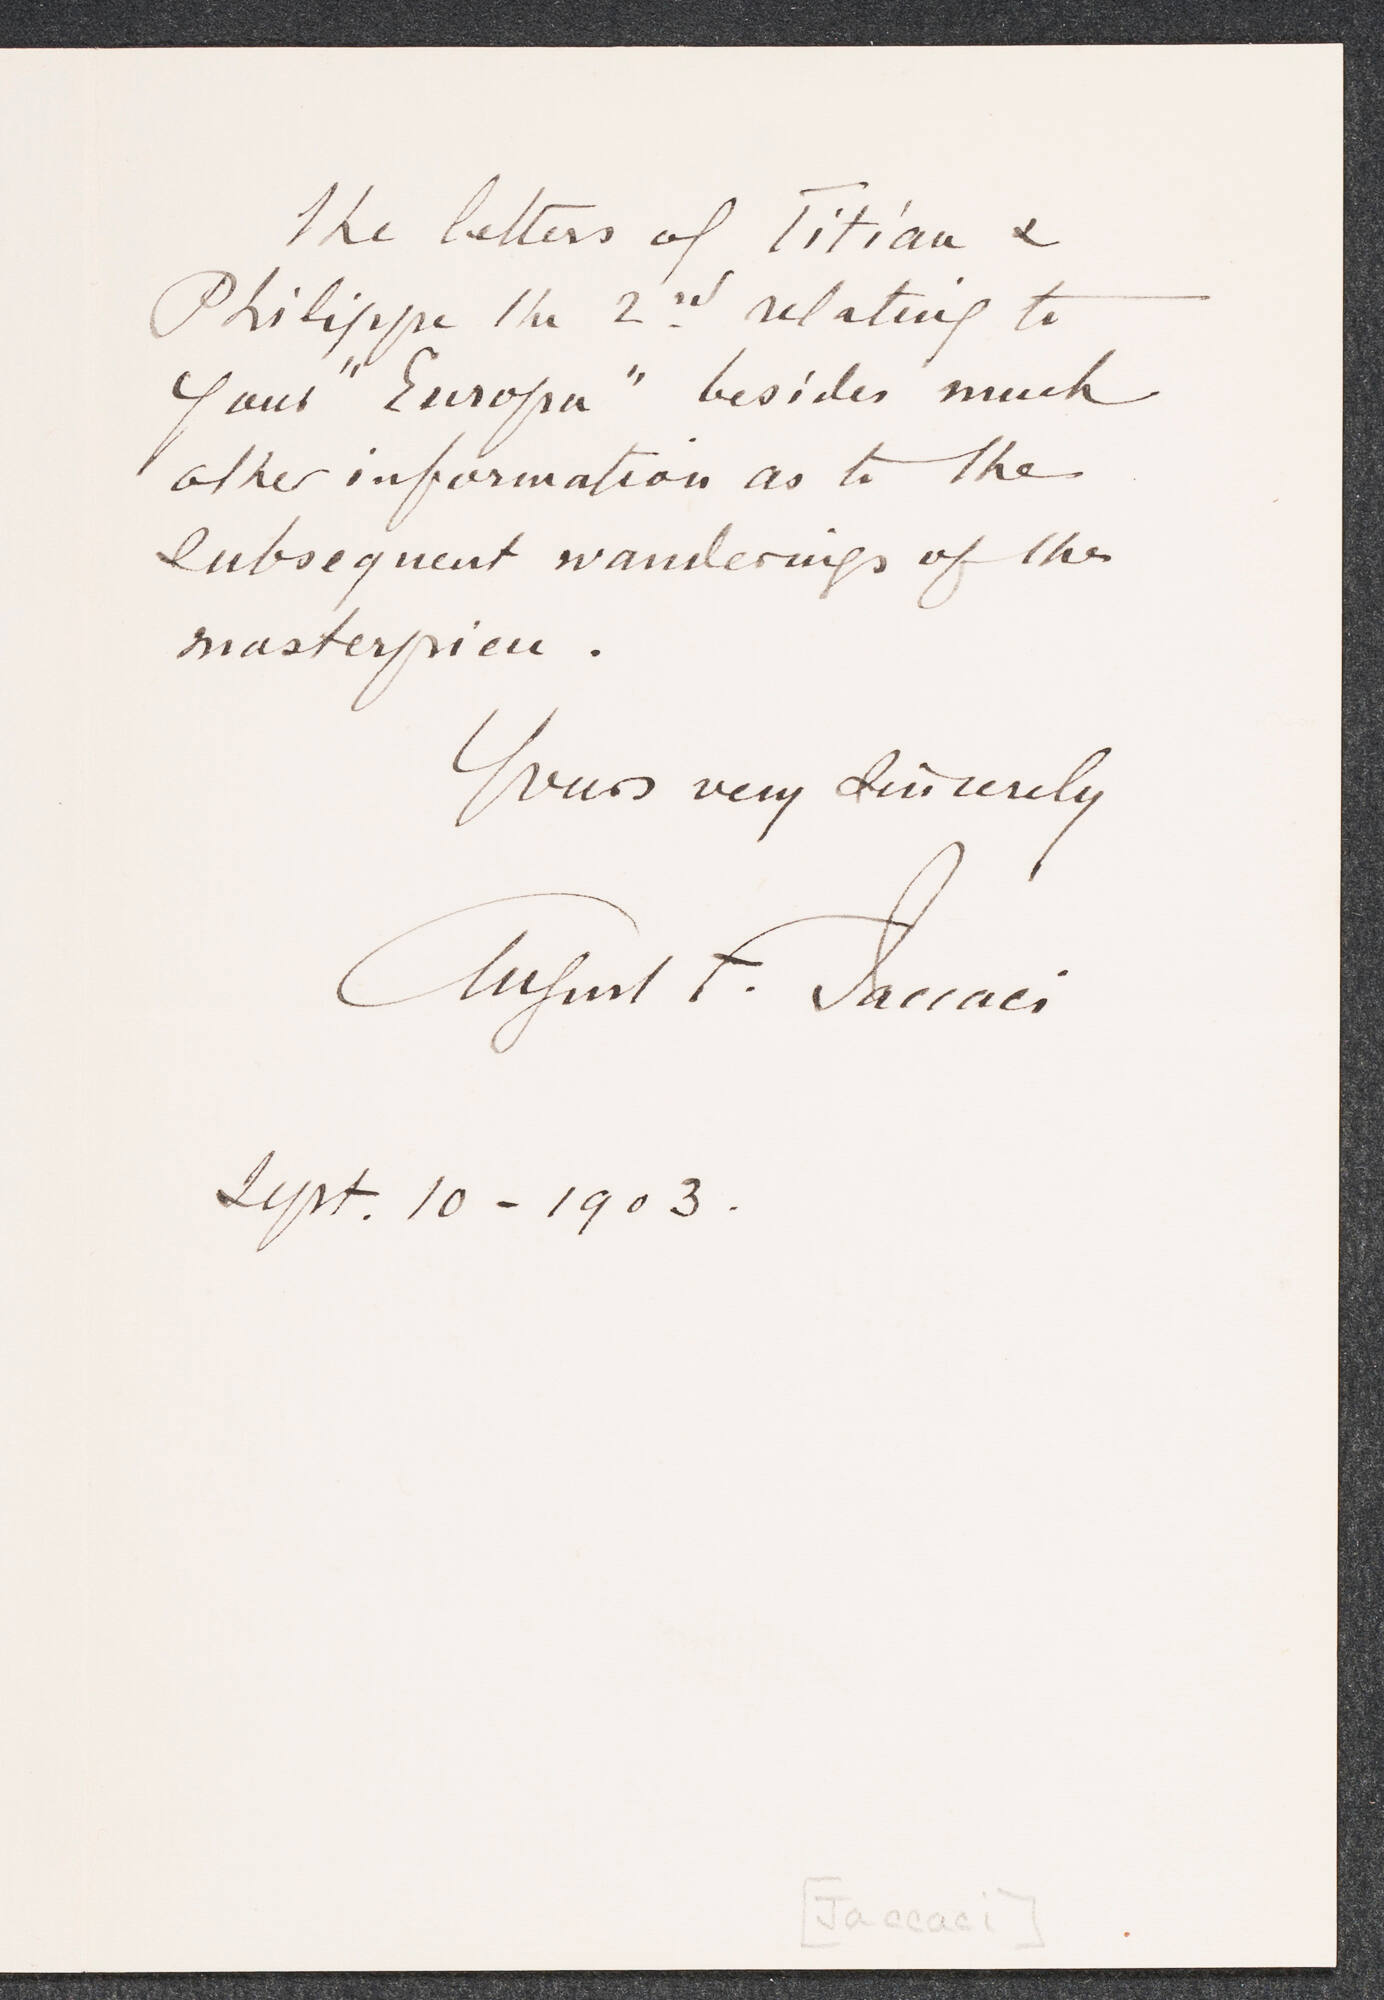 The letters of Titian &
Philippe the 2nd relating to
your "Europa" besides much
other information as to the
subsequent wanderings of the
masterpiece.
Yours very sincerely
August F. Jaccaci
Sept. 10 - 1903.
[Jaccaci]